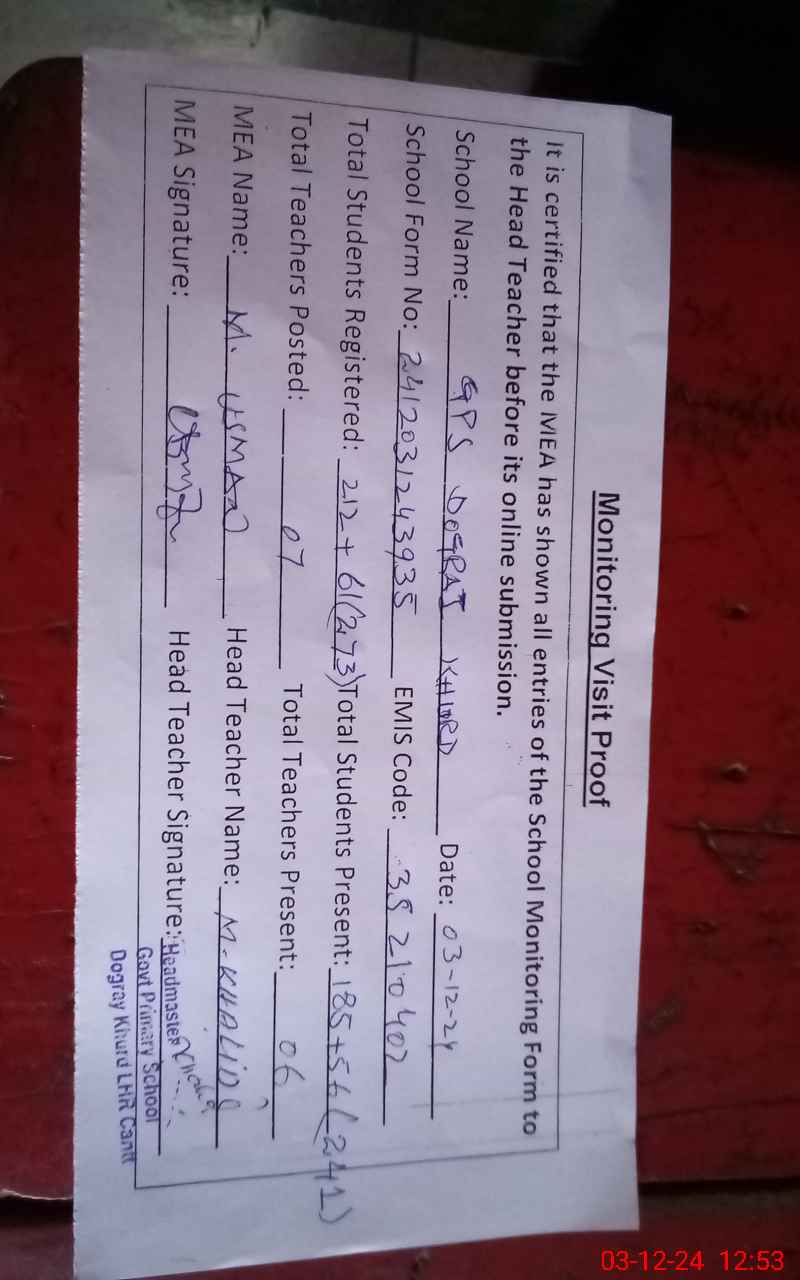 Monitoring Visit Proof
It is certified that the MEA has shown all entries of the School Monitoring Form to
the Head Teacher before its online submission.
School Name: GPS DOGRAI KHURD Date: 03-12-24
School Form No: 2412031243935 EMIS Code: 35210407
Total Students Registered: 212+61(273) Total Students Present: 185+56(241)
Total Teachers Posted: 07 Total Teachers Present: 06
MEA Name: M. USMAN Head Teacher Name: M. KHALID
MEA Signature: Head Teacher Signature:
Headmaster
Govt Primary School
Dogray Khurd LHR Cantt
03-12-24 12:53